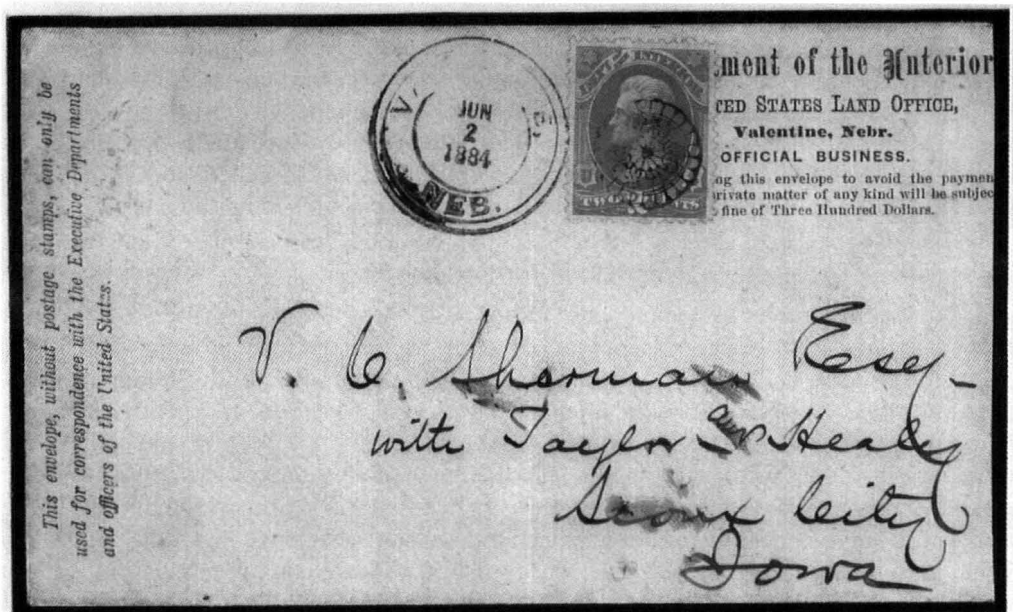 This envelope, without postage stamps, can only be
used for correspondence with the Executive Departments
and officers of the United States.
V. E.
JUN
2
1884
NEB.
TWO CENTS
ment of the Interior
TED STATES LAND OFFICE,
Valentine, Nebr.
OFFICIAL BUSINESS.
ng this envelope to avoid the paymen
rivate matter of any kind will be subjec
fine of Three Hundred Dollars.
V. C. Sherman Esq-
with Taylor and Healey
Sioux City
Iowa